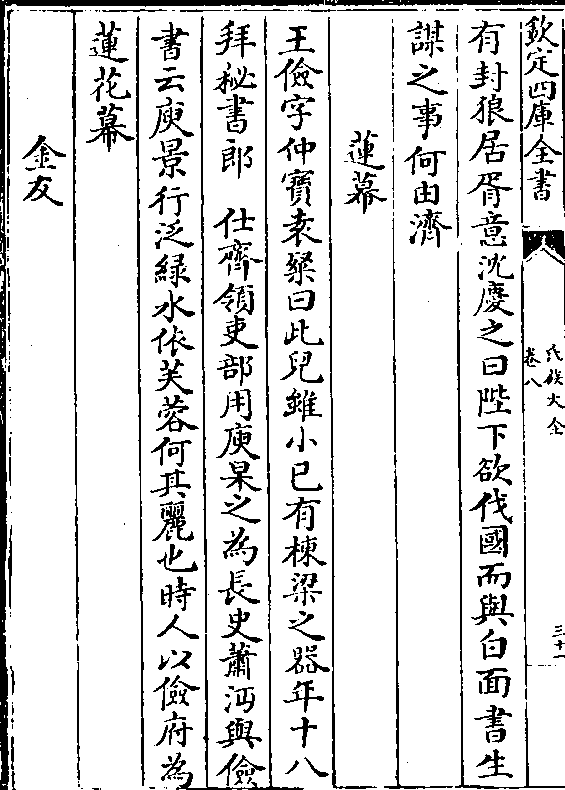 欽定四庫全書
氏族大全
卷八
三十一
有封狼居胥意沈慶之曰陛下欲伐國而與白面書生
謀之事何由濟
蓮幕
王儉字仲寶袁粲曰此兒雖小已有棟梁之器年十八
拜秘書郎　仕齊領吏部用庾杲之為長史蕭沔與儉
書云庾景行泛緑水依芙蓉何其麗也時人以儉府為
蓮花幕
金友